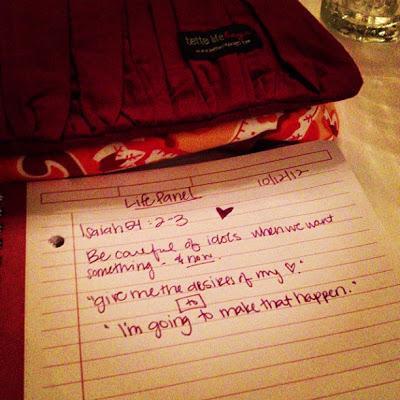 tette life bags
Life Panel
10/12/12
Isaiah 54:2-3
Be careful of idols when we want
something.. & now.
"give me the desires of my ♡."
to
"I'm going to make that happen."